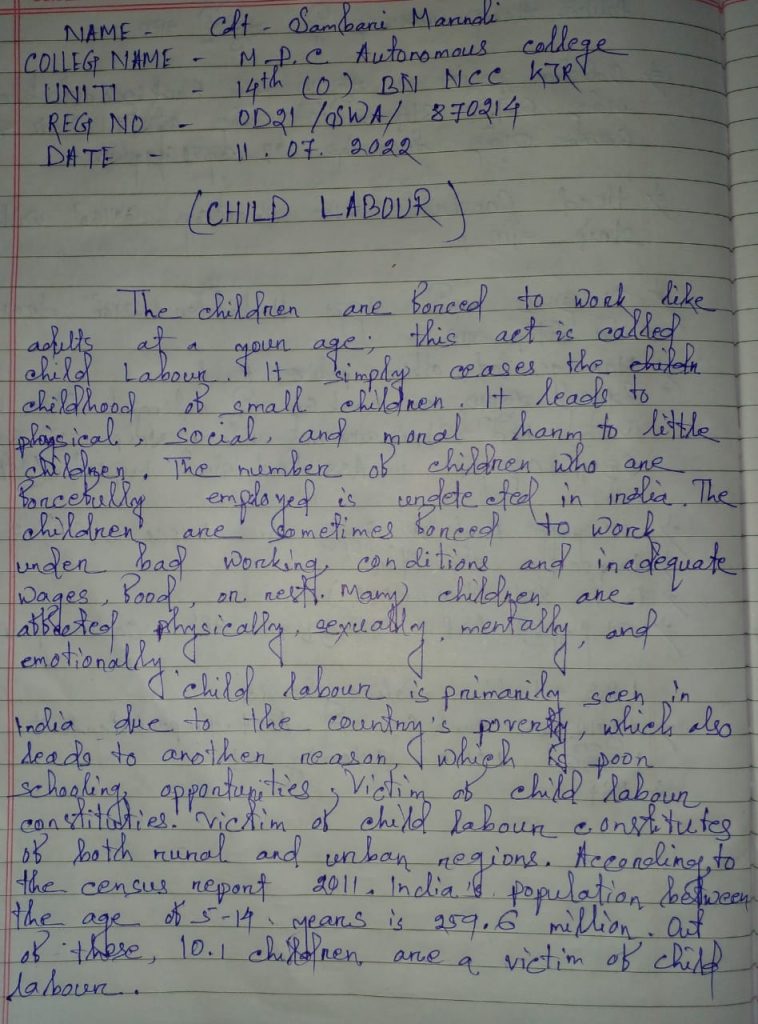 NAME - Cdt - Sambari Marndi
COLLEG NAME - M.P.C Autonomous college
UNITI - 14th (O) BN NCC KJR
REG NO - OD21/SWA/ 870214
DATE - 11.07.2022
(CHILD LABOUR)
The children are forced to work like
adults at a youn age; this act is called
child Labour. It simply ceases the childr
childhood of small children. It leads to
physical, social, and moral harm to little
children. The number of children who are
forcefully employed is undetected in india. The
children are sometimes forced to work
under bad working conditions and inadequate
wages, food, or rest. Many children are
affected physically, sexually, mentally, and
emotionally.
child labour is primarily seen in
India due to the country's poverty, which also
leads to another reason, which is poor
schooling opportunities, Victim of child labour
constituties. Victim of child labour constitutes
of both rural and urban regions. According to
the census report 2011. India's population between
the age of 5-14 years is 259.6 million. Out
of these, 10.1 children are a victim of child
labour.